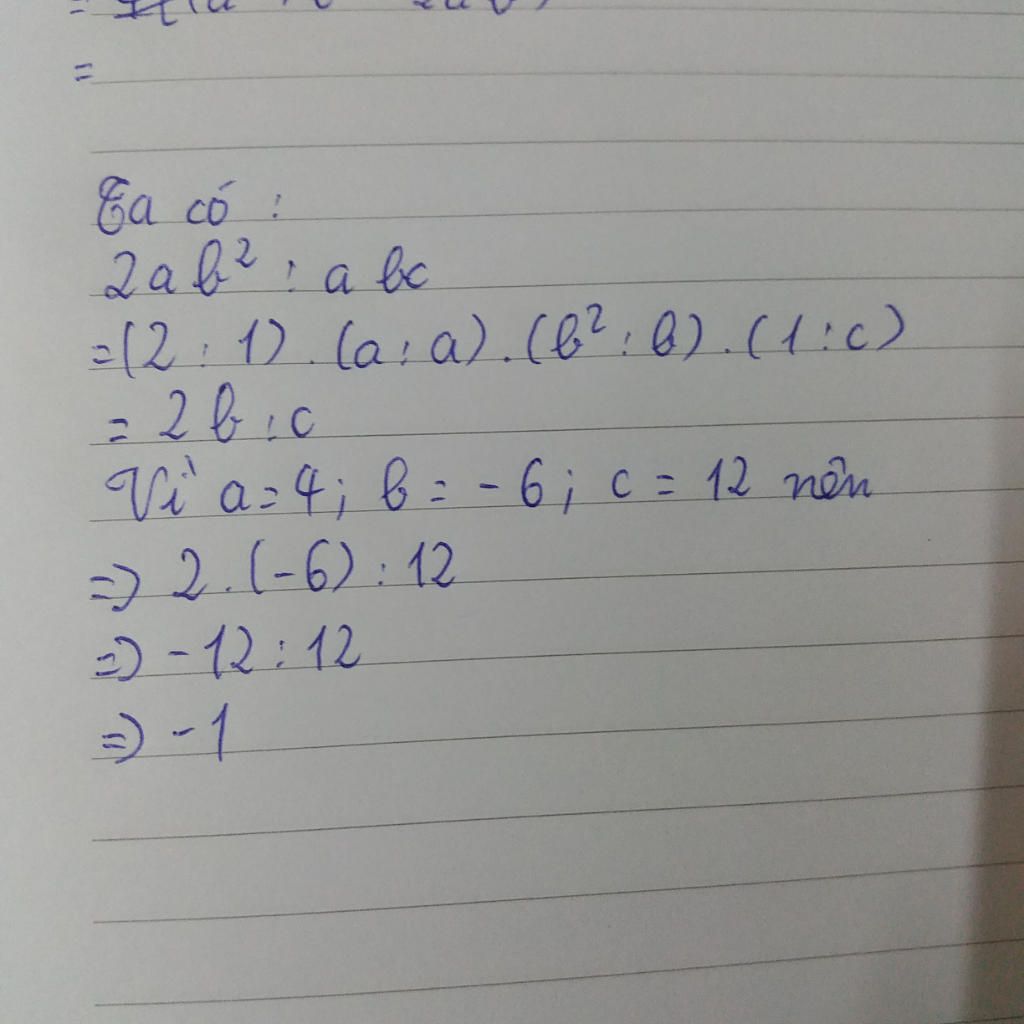 =
Ta có :
2ab² : abc
=(2 : 1) . (a : a) . (b² : b) . (1 : c)
= 2b : c
Vì a = 4 ; b = - 6 ; c = 12 nên
=> 2 . (-6) : 12
=> - 12 : 12
=> - 1